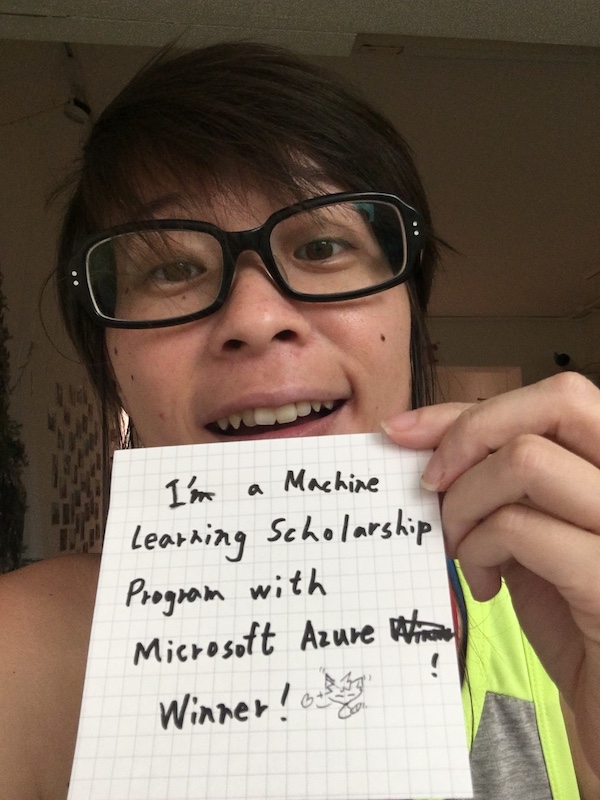 I'm a Machine
Learning Scholarship
Program with
Microsoft Azure Winner
!
Winner!